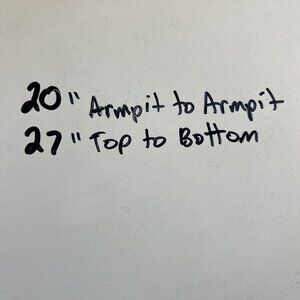 20" Armpit to Armpit
27" Top to Bottom